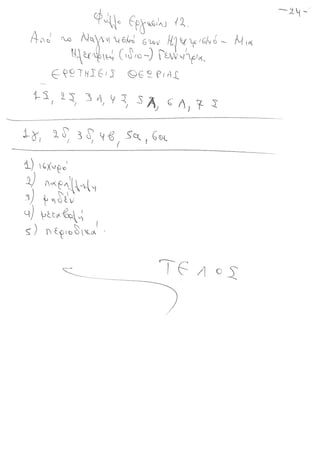 -24-
Φύλλο Εργασίας 12.
Από το Μαγνητισμό στον Ηλεκτρισμό - Μια
Ηλεκτρική (ιδιο-) Γεννήτρια.
ΕΡΩΤΗΣΕΙΣ ΘΕΩΡΙΑΣ
1Σ, 2Σ, 3Λ, 4Σ, 5Λ, 6Λ, 7Σ
1γ, 2δ, 3δ, 4β, 5α, 6α
1) ισχυρό
2) παράλληλη
3) μηδέν
4) μεταβολή
5) περιοδικά
ΤΕΛΟΣ